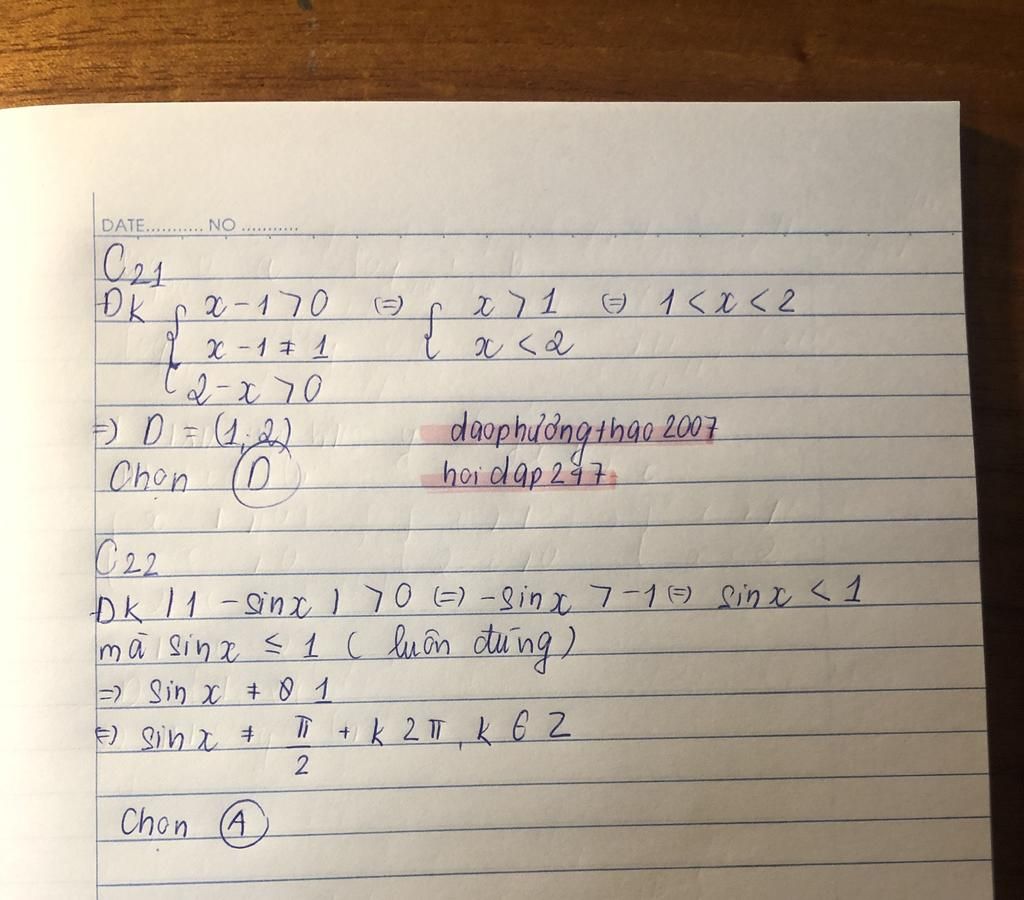 DATE........... NO ...........
C21
ĐK { x - 1 > 0 (=) { x > 1 (=) 1 < x < 2
x - 1 ≠ 1 x < 2
2 - x > 0
=) D = (1; 2) daophương thao 2007
Chọn D hoidap247
C22
ĐK | 1 - sin x | > 0 (=) - sin x > -1 (=) sin x < 1
mà sin x ≤ 1 ( luôn đúng )
=) sin x ≠ 1
(=) sin x ≠ π/2 + k 2π, k ∈ Z
Chọn A